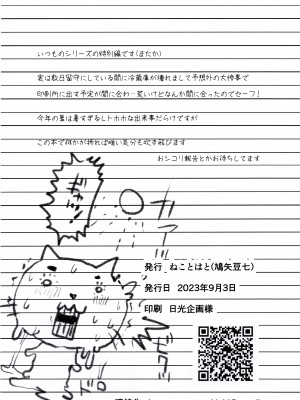 いつものシリーズの特別編です(またか)
実は数日留守にしている間に冷蔵庫が壊れまして予想外の大惨事で
印刷所に出す予定が間に合わ…ないけどなんか間に合ったのでセーフ!
今年の夏は暑すぎるしトホホな出来事だらけですが
この本で何かが捗れば暗い気分も吹き飛びます
おシコリ報告とかお待ちしてます
発行 ねことはと(鳩矢豆七)
発行日 2023年9月3日
印刷 日光企画様